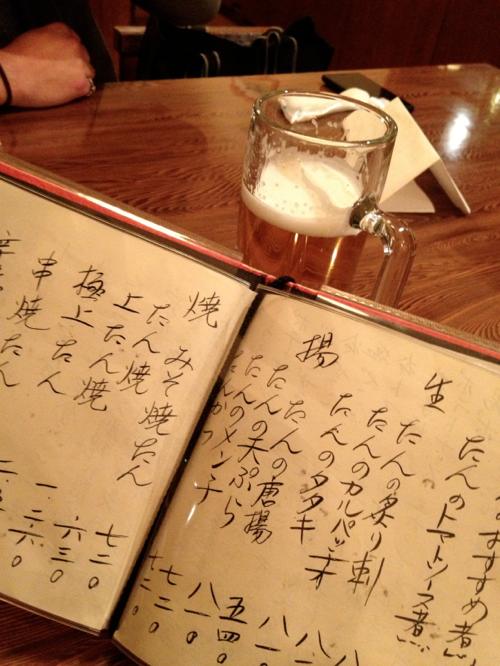 おすすめ煮
たんのトマトソース煮
生
たんの炙り刺
たんのカルパッチオ
たんのタタキ
揚
たんの唐揚
たんの天ぷら
たんのメンチ
たんかつ
八一
八一
五四〇
八一〇
七二〇
焼
みそ焼たん
たん焼
上たん焼
極上たん
串焼たん
七二〇
六三〇
一二六〇